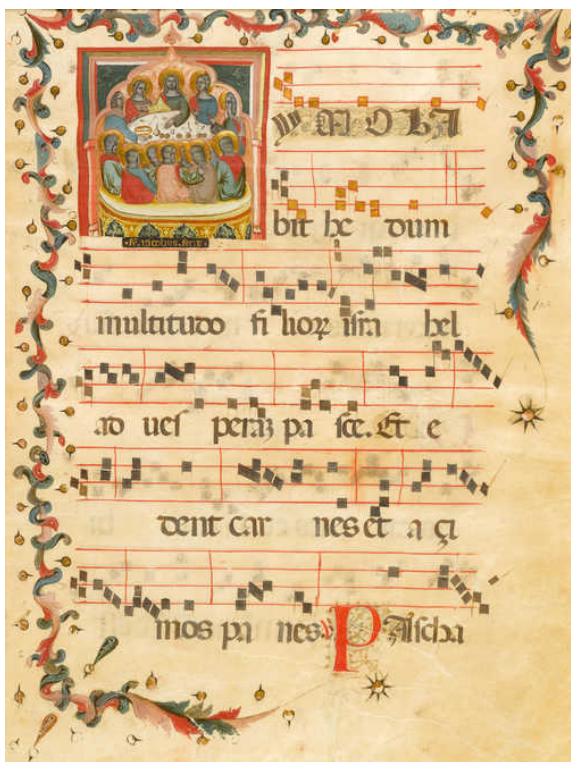 MOLA
bit he dum
multitudo fi lioꝝ isra hel
ad ues peraꝫ pa sce. Et e
dent car nes et a çi
mos pa nes. PAscha